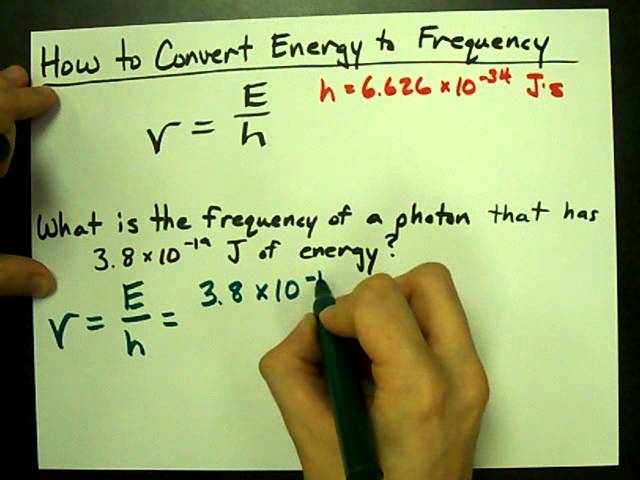 How to Convert Energy to Frequency
h = 6.626 × 10⁻³⁴ J·s
ν = E/h
What is the frequency of a photon that has
3.8 × 10⁻¹⁹ J of energy?
ν = E/h = 3.8 × 10⁻¹